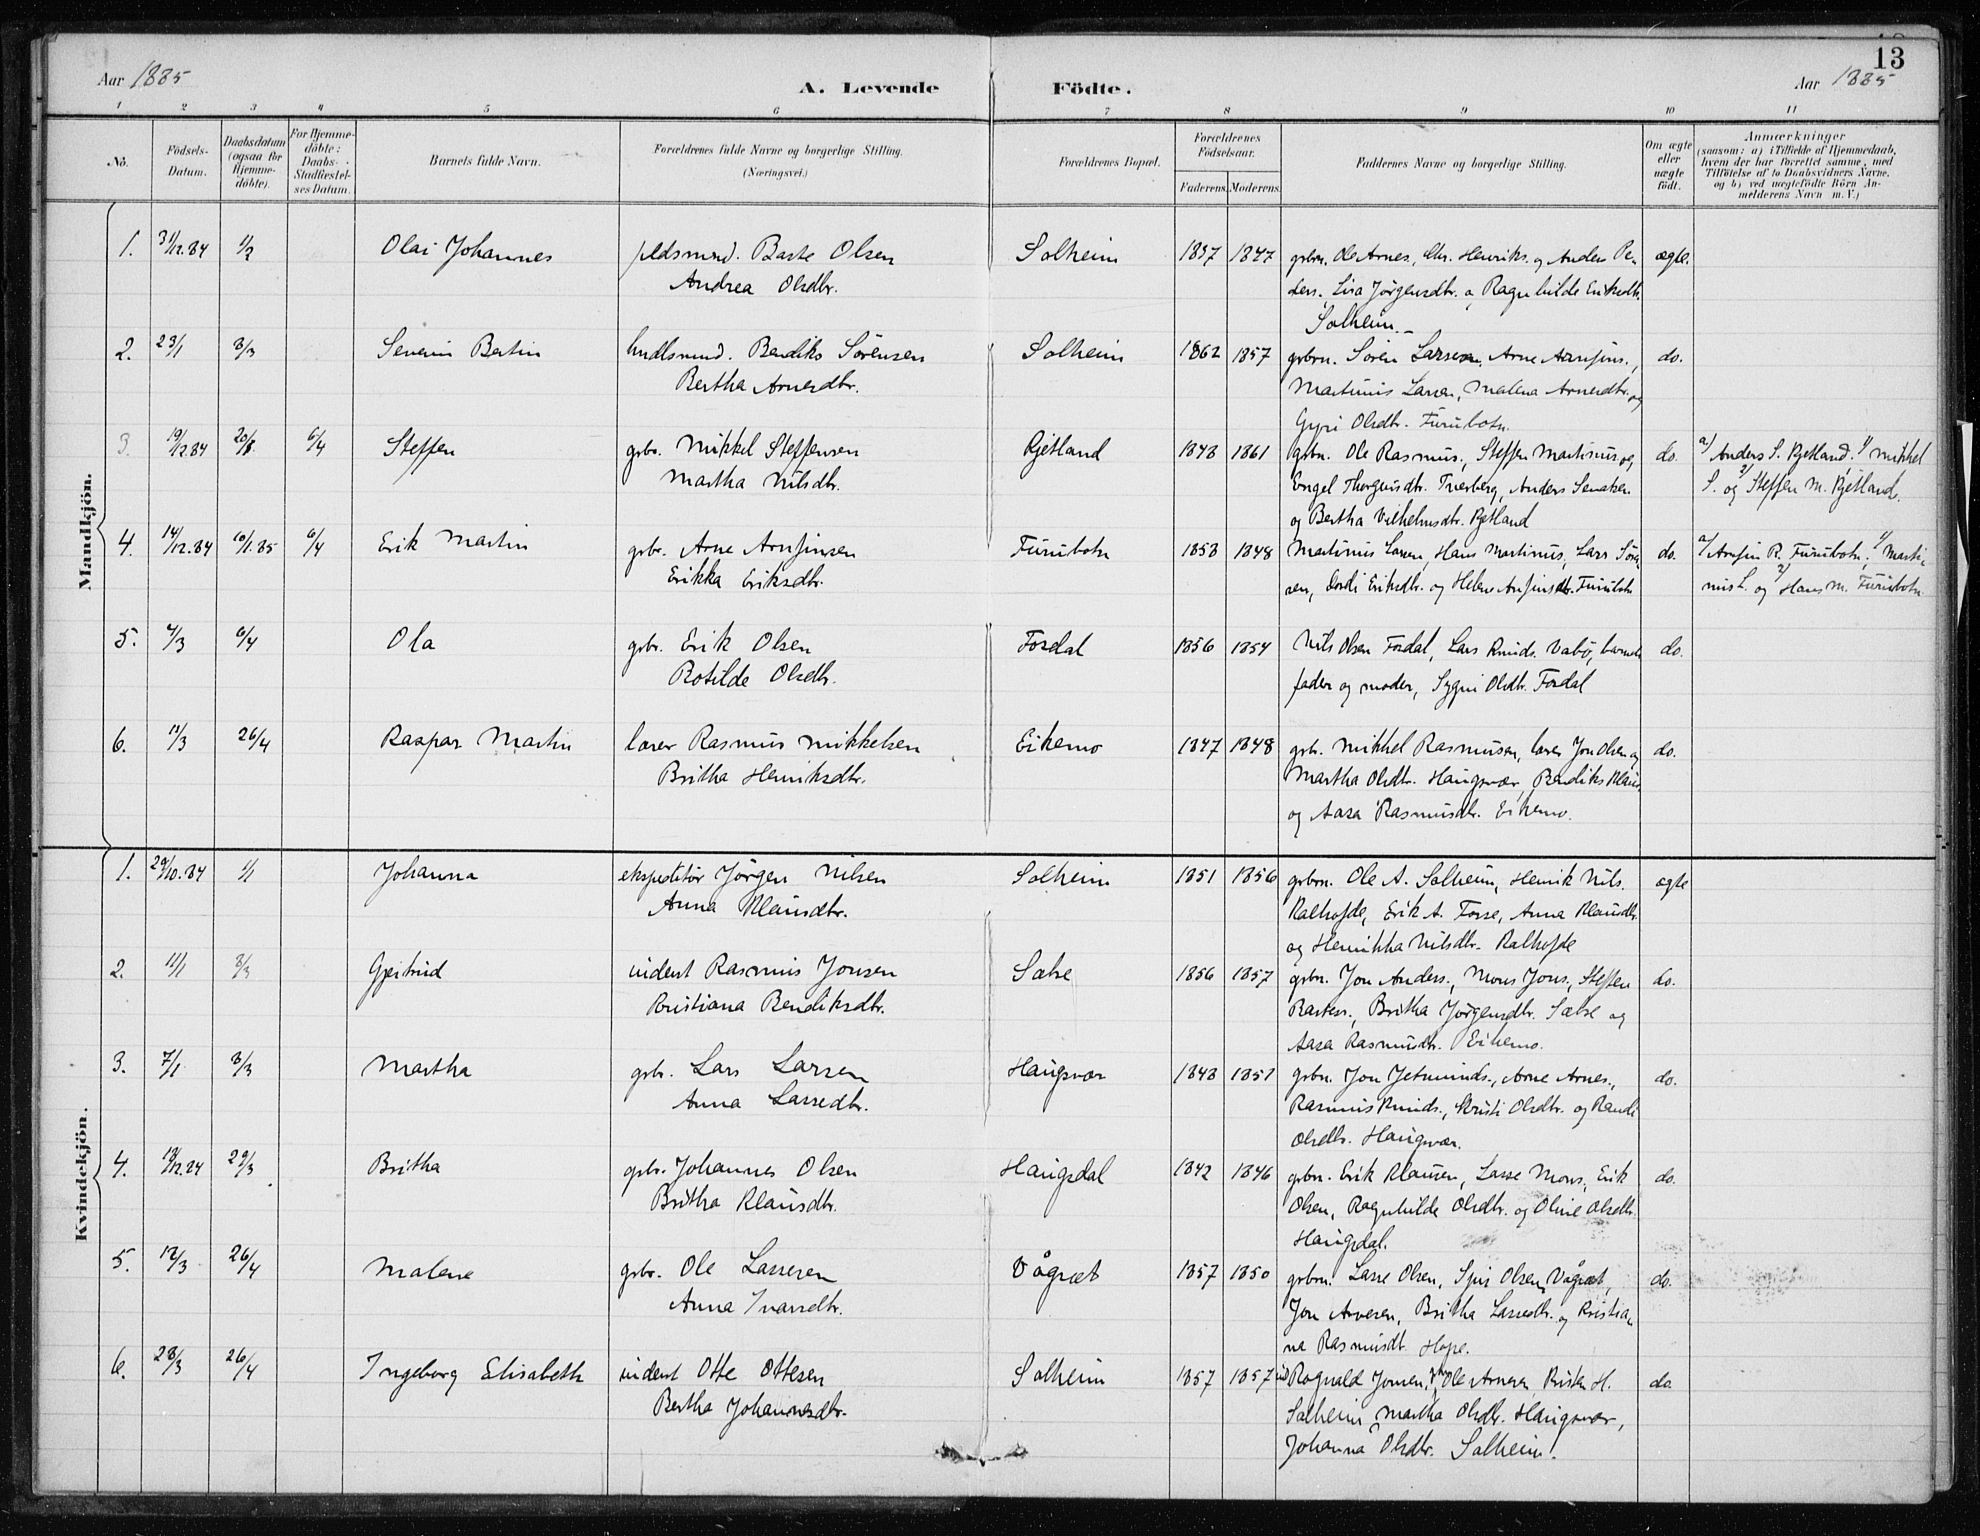 13
Aar 1885
A. Levende Födte.
Aar 1885
1 2 3 4 5 6 7 8 9 10 11
No.
Födsels-Datum.
Daabsdatum (ogsaa for Hjemme-döbte).
For Hjemme-döbte: Daabs-Stadfæstel-ses Datum.
Barnets fulde Navn.
Forældrenes fulde Navne og borgerlige Stilling. (Næringsvei.)
Forældrenes Bopæl.
Forældrenes Födselsaar.
Faderens. Moderens.
Faddernes Navne og borgerlige Stilling.
Om ægte eller uægte födt.
Anmærkninger
(saasom: a) i Tilfælde af Hjemmedaab,
hvem der har forrettet samme, med
Tilföielse af to Daabsvidners Navne,
og b) ved uægtefödte Börn An-
melderens Navn m. V.)
Mandkjön.
1. 31/12.84 1/2 Olai Johannes Baste Olsen Solheim 1857 1847 grbrn. Ole Arnes., Chr. Henriks. og Anders Pe- ægte.
Andrea Olsdtr. ders., Lisa Jörgensdtr. o, Ragnhilde Eriksdtr.
Solheim.
2. 23/1 8/3 Severin Bertin husmnd. Bendiks Sörensen Solheim 1862 1857 grbrn. Sören Larsen, Arne Arnfins., do.
Bertha Arnesdtr. Martinus Larsen, Malena Arnesdtr. og
Gyri Olsdtr. Furubotn.
3. 19/12.84 6/4 Steffen grbr. Mikkel Steffensen Kjetland 1848 1861 grbrn. Ole Rasmus., Steffen Martinus og do. a) Anders S. Kjetland. 1) Mikkel
Martha Nilsdtr. Engel Thorguisdtr. Tverberg, Anders S. og 2) Steffen M. Kjetland.
og Bertha Vilhelmsdtr. Kjetland
4. 14/12.84 10/1.85 6/4 Erik Martin grbr. Arne Arnfinsen Furubotn 1853 1848 Martinus Larsen, Hans Martinus, Lars Sören- do. a) Arnfin R. Furubotn. 1) Marti-
Erikka Eriksdtr. sen, Dordi Eriksdtr. og Helene Arnfinsdtr. Furubotn nus L. og 2) Hans M. Furubotn.
5. 4/3 6/4 Ola grbr. Erik Olsen Fosdal 1856 1854 Nils Olsen Fosdal, Lars Knuds. Vabö, barnets do.
Botilde Olsdtr. fader og moder, Sygni Olsdtr. Fosdal
6. 11/3 26/4 Kaspar Martin lærer Rasmus Mikkelsen Eikemo 1847 1848 grbr. Mikkel Rasmusen, lærer Jon Olsen og do.
Britha Henriksdtr. Martha Olsdtr. Haugsvær, Bendiks Klaus.
og Aasa Rasmusdtr. Eikemo.
Kvindekjön.
1. 29/10.84 1/1 Johanna ekspeditör Jörgen Nilsen Solheim 1851 1856 grbrn. Ole A. Solheim, Henrik Nils. ægte
Anna Klausdtr. Kalhofde, Erik A. Fosse, Anna Klausdtr.
og Henrikka Nilsdtr. Kalhofde
2. 11/1 8/3 Gjertrud inderst Rasmus Jonsen Sætre 1856 1857 grbrn. Jon Anders., Mons Jons., Steffen do.
Kristiana Bendiksdtr. Bastess., Britha Jörgensdtr. Sætre og
Aasa Rasmusdtr. Eikemo.
3. 7/1 8/3 Martha grbr. Lars Larsen Haugsvær 1848 1851 grbrn. Jon Jetmunds., Arne Arnes., do.
Anna Larsedtr. Rasmus Knuds., Kristi Olsdtr. og Randi
Olsdtr. Haugsvær.
4. 29/3 Britha grbr. Johannes Olsen Haugsdal 1842 1846 grbrn. Erik Klausen, Lasse Mons., Erik do.
Britha Klausdtr. Olsen, Ragnhilde Olsdtr. og Oline Olsdtr.
Haugsdal.
5. 12/3 26/4 Malene grbr. Ole Lassesen Vågsæt 1857 1850 grbrn. Lasse Olsen, Sjur Olsen Vågsæt, do.
Anna Ivarsdtr. Jon Arnesen, Britha Lassedtr. og Kristia-
na Rasmusdt. Hope.
6. 28/3 26/4 Ingeborg Elisabeth inderst Otte Ottesen Solheim 1857 1857 Ragnald Jonsen, Ole Arnesen, Kristen H. do.
Bertha Johannesdtr. Solheim, Martha Olsdtr. Haugsvær,
Johanna Olsdtr. Solheim.